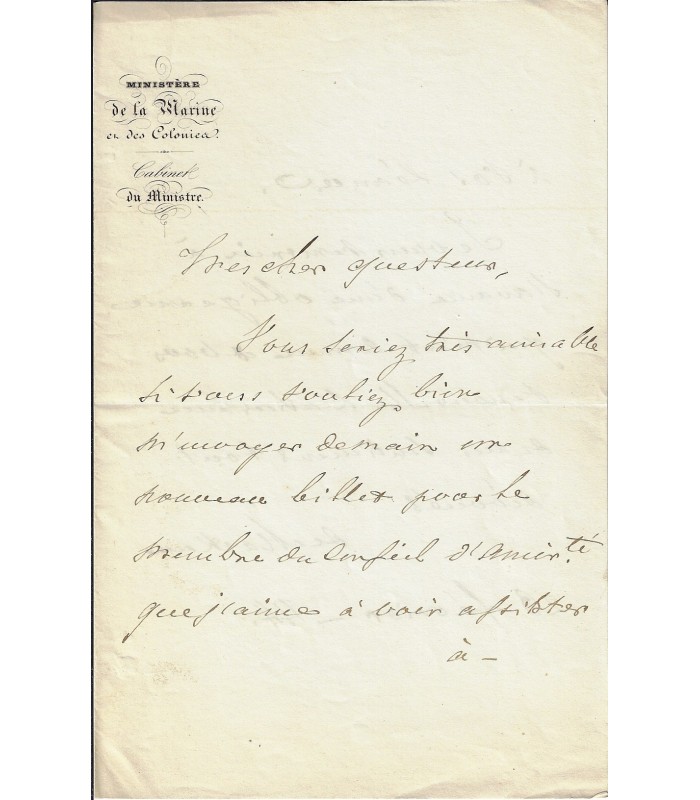 MINISTÈRE
de la Marine
et des Colonies.
Cabinet
du Ministre.
Très cher questeur,
Vous seriez très aimable
si vous vouliez bien
m'envoyer demain un
nouveau billet pour le
membre du Conseil d'Amir.té
que j'aime à voir assister
à –